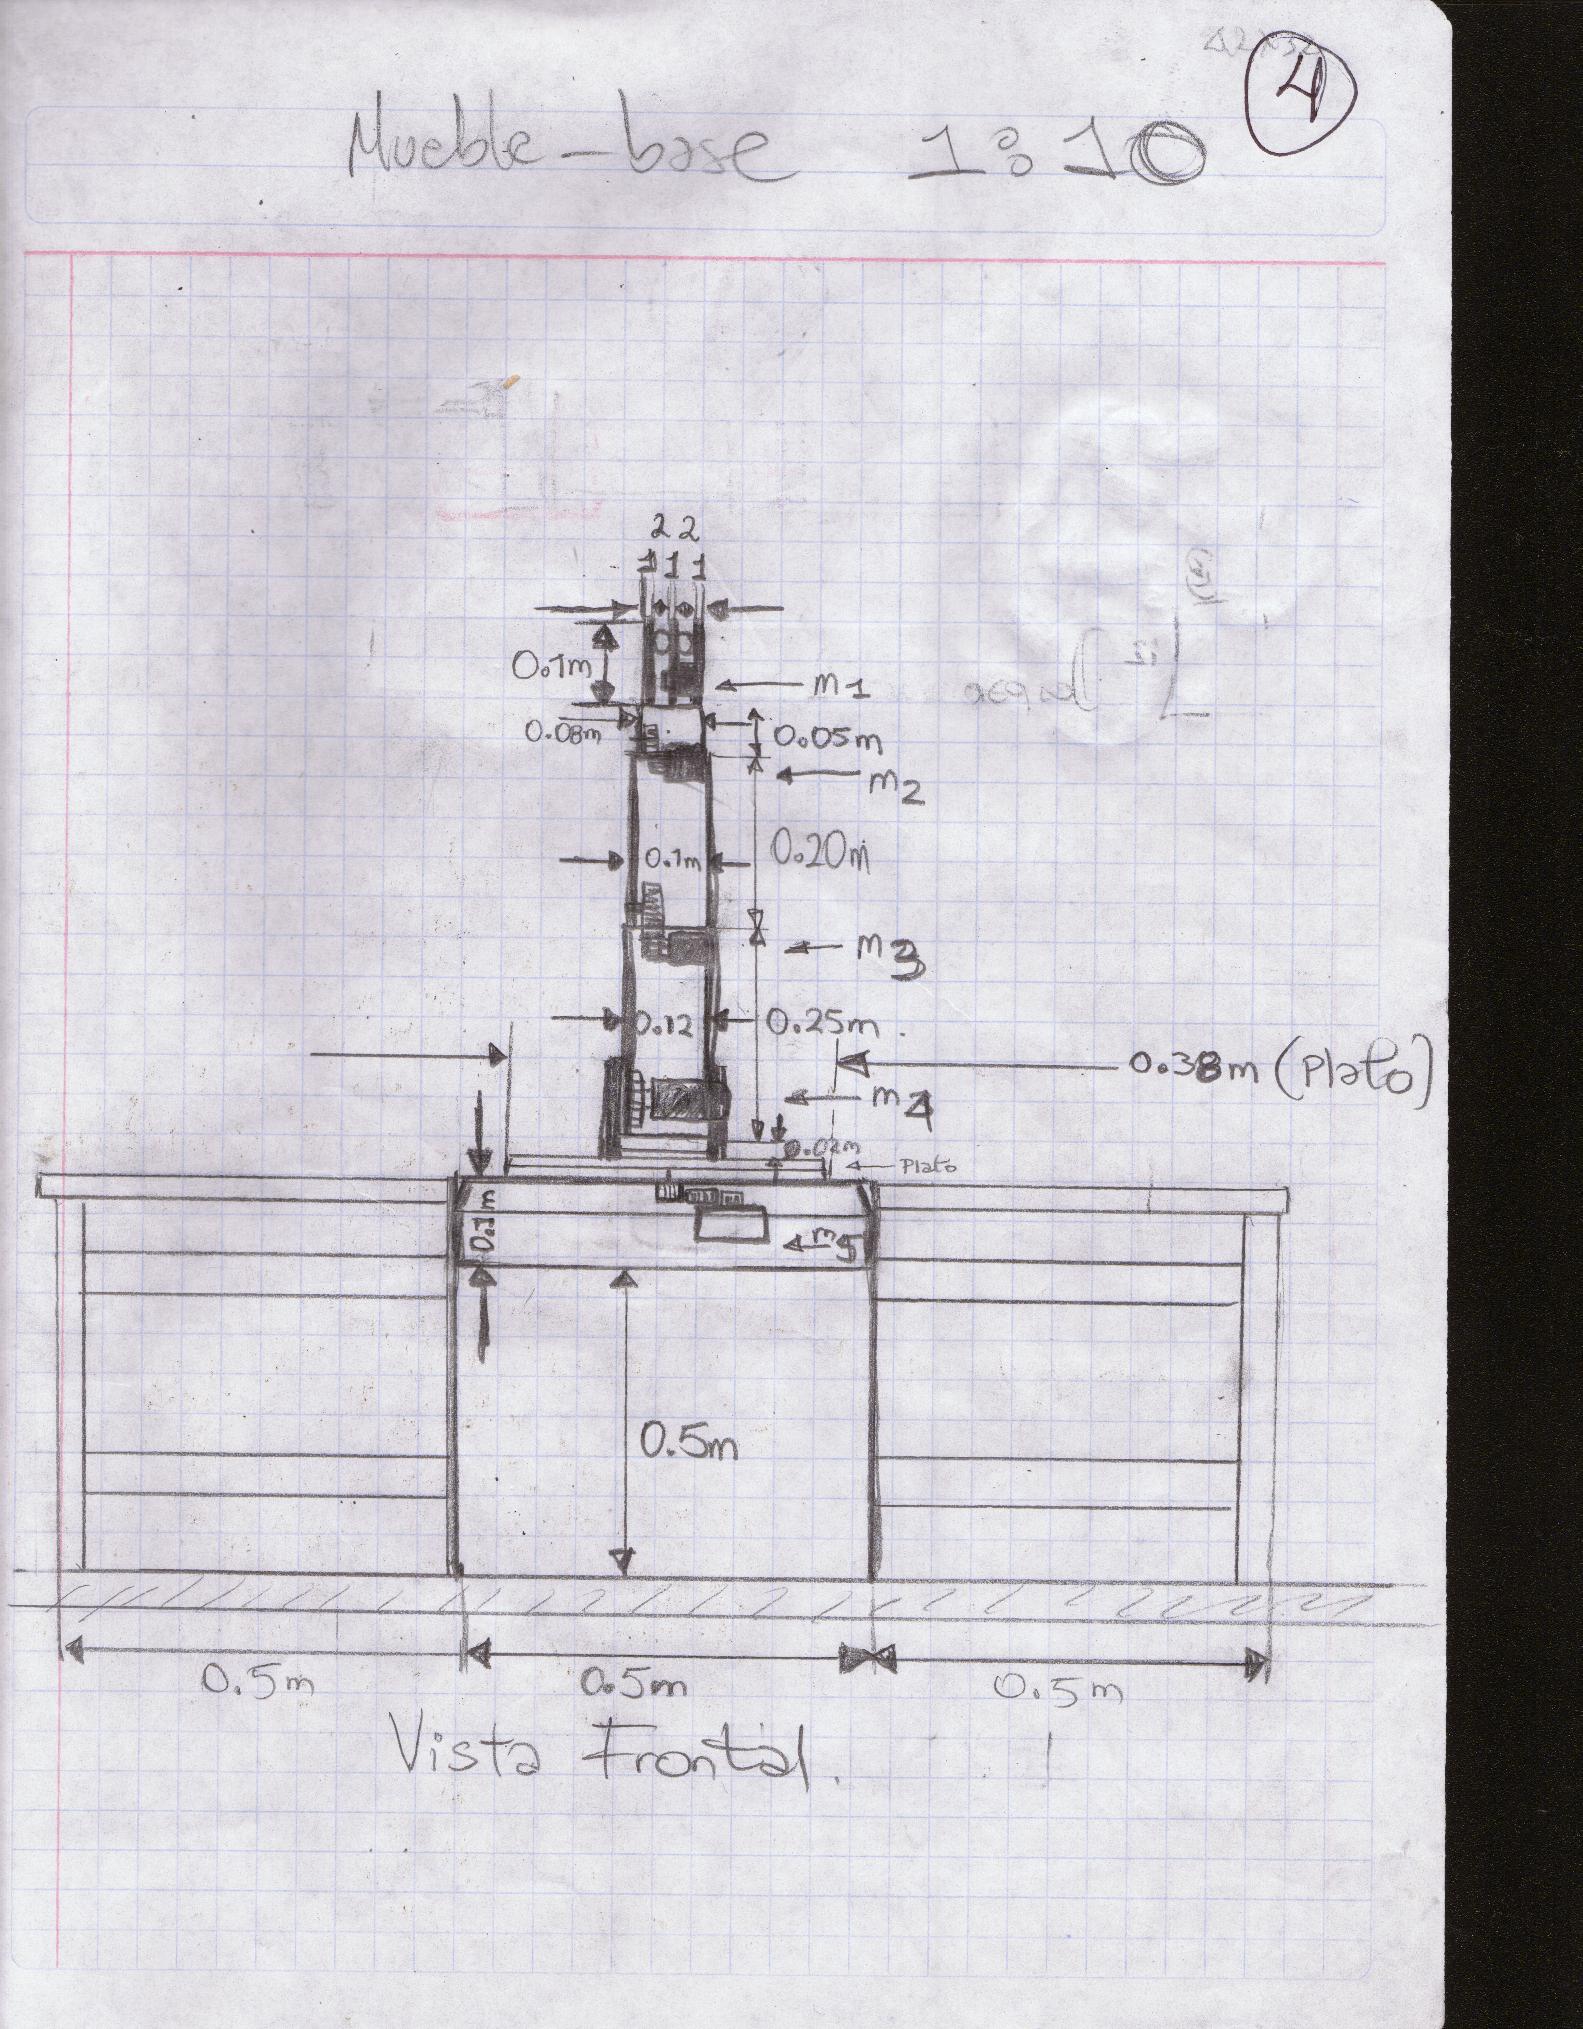 4
Mueble-base 1:10
2 2
1 1 1
0.1m
m1
0.08m
0.05m
m2
0.1m
0.20m
m3
0.12
0.25m.
0.38m (Plato)
m4
0.02m
Plato
0.1m
m5
0.5m
0.5m
0.5m
0.5m
Vista Frontal.